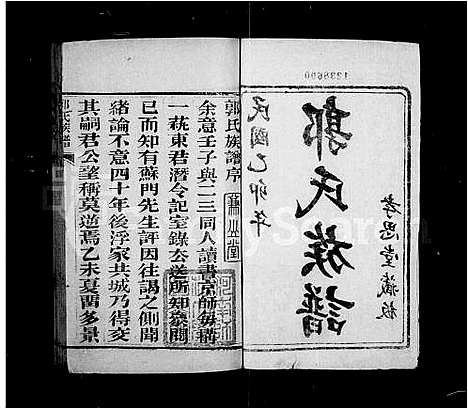 孝思堂藏板
郭氏族譜
民國乙卯年
1338690
郭氏族譜序
余意壬子與二三同人讀書京師每搆
一萟東君潛令記室錄去送所知裒閱
已而知有蘇門先生評因往謁之側聞
緒論不意四十年後浮家共城乃得交
其嗣君公望稱莫逆焉乙未夏雷多景
郭氏族譜